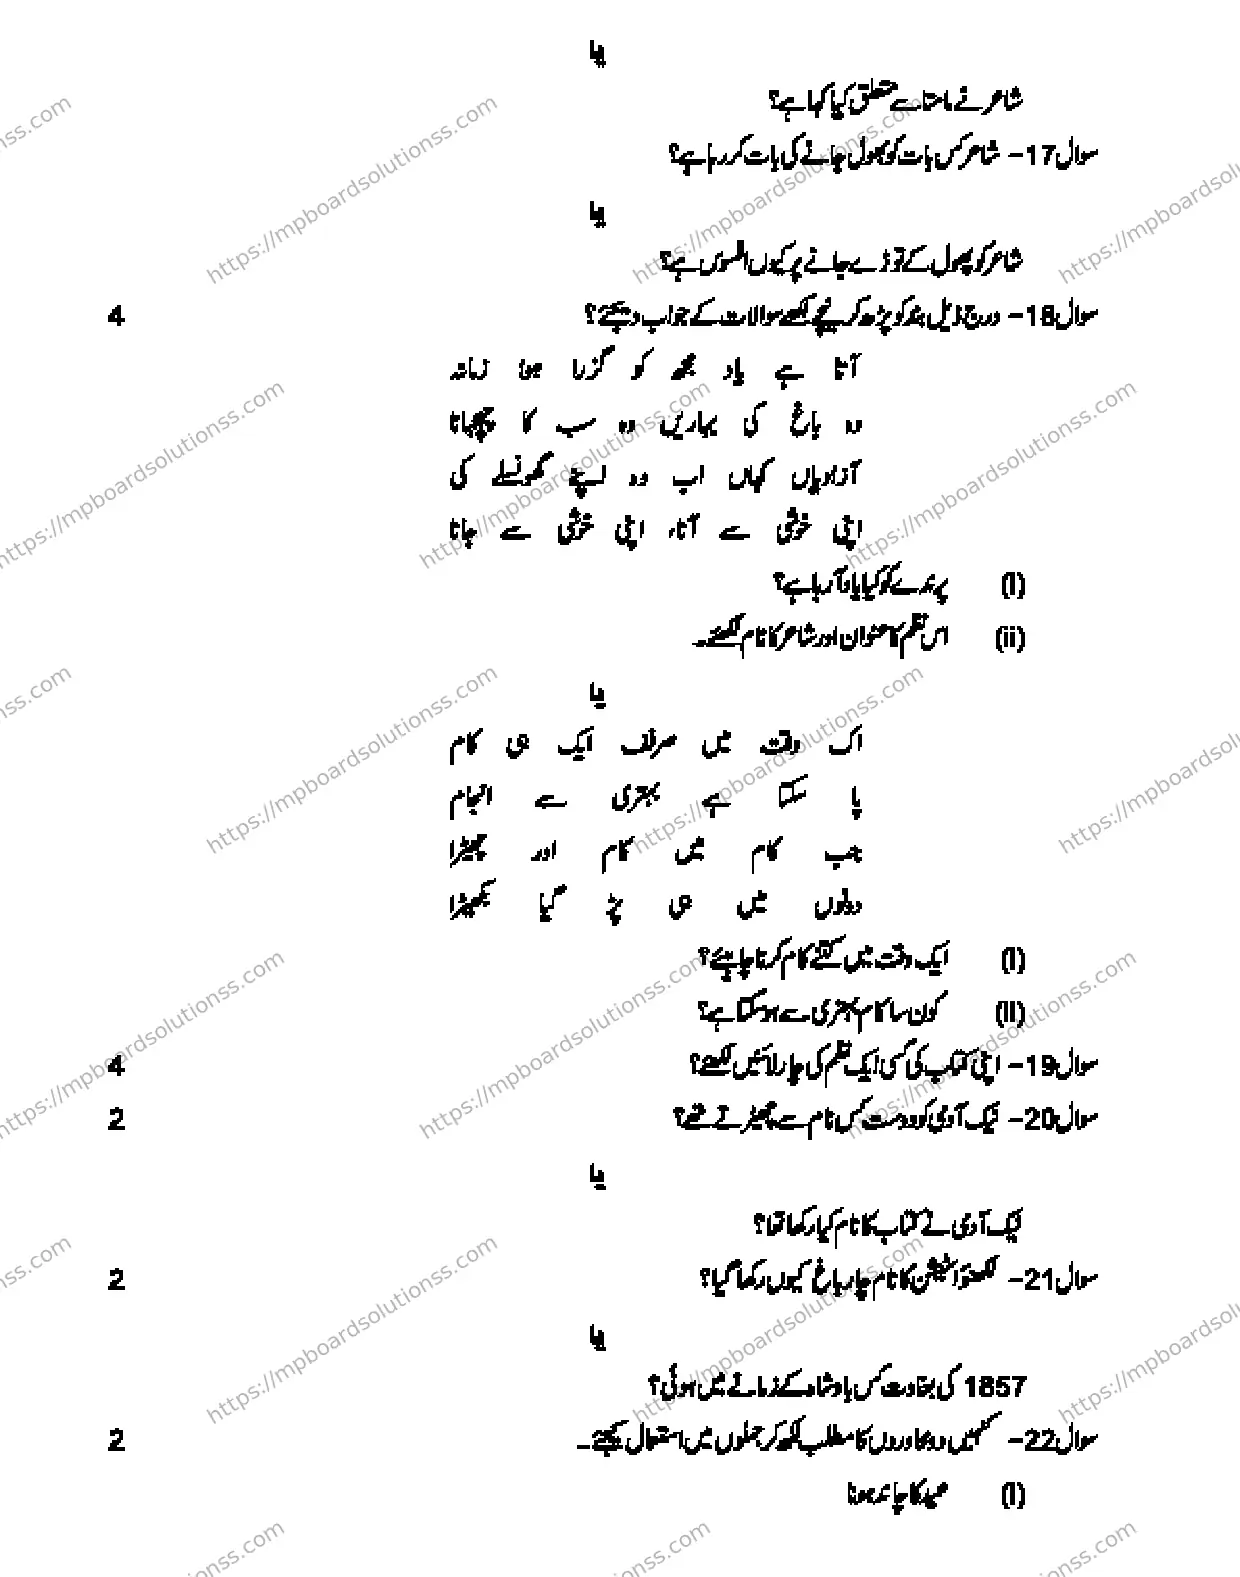 یا
شاعر نے مامتا سے متعلق کیا کہا ہے؟
سوال17- شاعر کس بات کو بھول جانے کی بات کر رہا ہے؟
یا
شاعر کو پھول کے توڑے جانے پر کیوں افسوس ہے؟
سوال18- درج ذیل بند کو پڑھ کر نیچے لکھے سوالات کے جواب دیجئے؟ 4
آتا ہے یاد مجھ کو گزرا ہوا زمانہ
وہ باغ کی بہاریں وہ سب کا چہچہانا
آزادیاں کہاں اب وہ اپنے گھونسلے کی
اپنی خوشی سے آنا، اپنی خوشی سے جانا
(I) پرندے کو کیا یاد آ رہا ہے؟
(ii) اس نظم کا عنوان اور شاعر کا نام لکھئے۔
یا
اک وقت میں صرف ایک ہی کام
پا سکتا ہے بہتری سے انجام
جب کام میں کام اور چھیڑا
دونوں میں ہی پڑ گیا بکھیڑا
(I) ایک وقت میں کتنے کام کرنا چاہیئے؟
(II) کون سا کام بہتری سے ہو سکتا ہے؟
سوال19- اپنی کتاب کی کسی ایک نظم کی چار لائنیں لکھئے؟ 4
سوال20- نیک آدمی کو دوست کس نام سے چھیڑتے تھے؟ 2
یا
نیک آدمی نے کتاب کا نام کیا رکھا تھا؟
سوال21- لکھنؤ اسٹیشن کا نام چار باغ کیوں رکھا گیا؟ 2
یا
1857 کی بغاوت کس بادشاہ کے زمانے میں ہوئی؟
سوال22- کنہیں دو محاوروں کا مطلب لکھ کر جملوں میں استعمال کیجئے۔ 2
(I) عید کا چاند ہونا
https://mpboardsolutionss.com